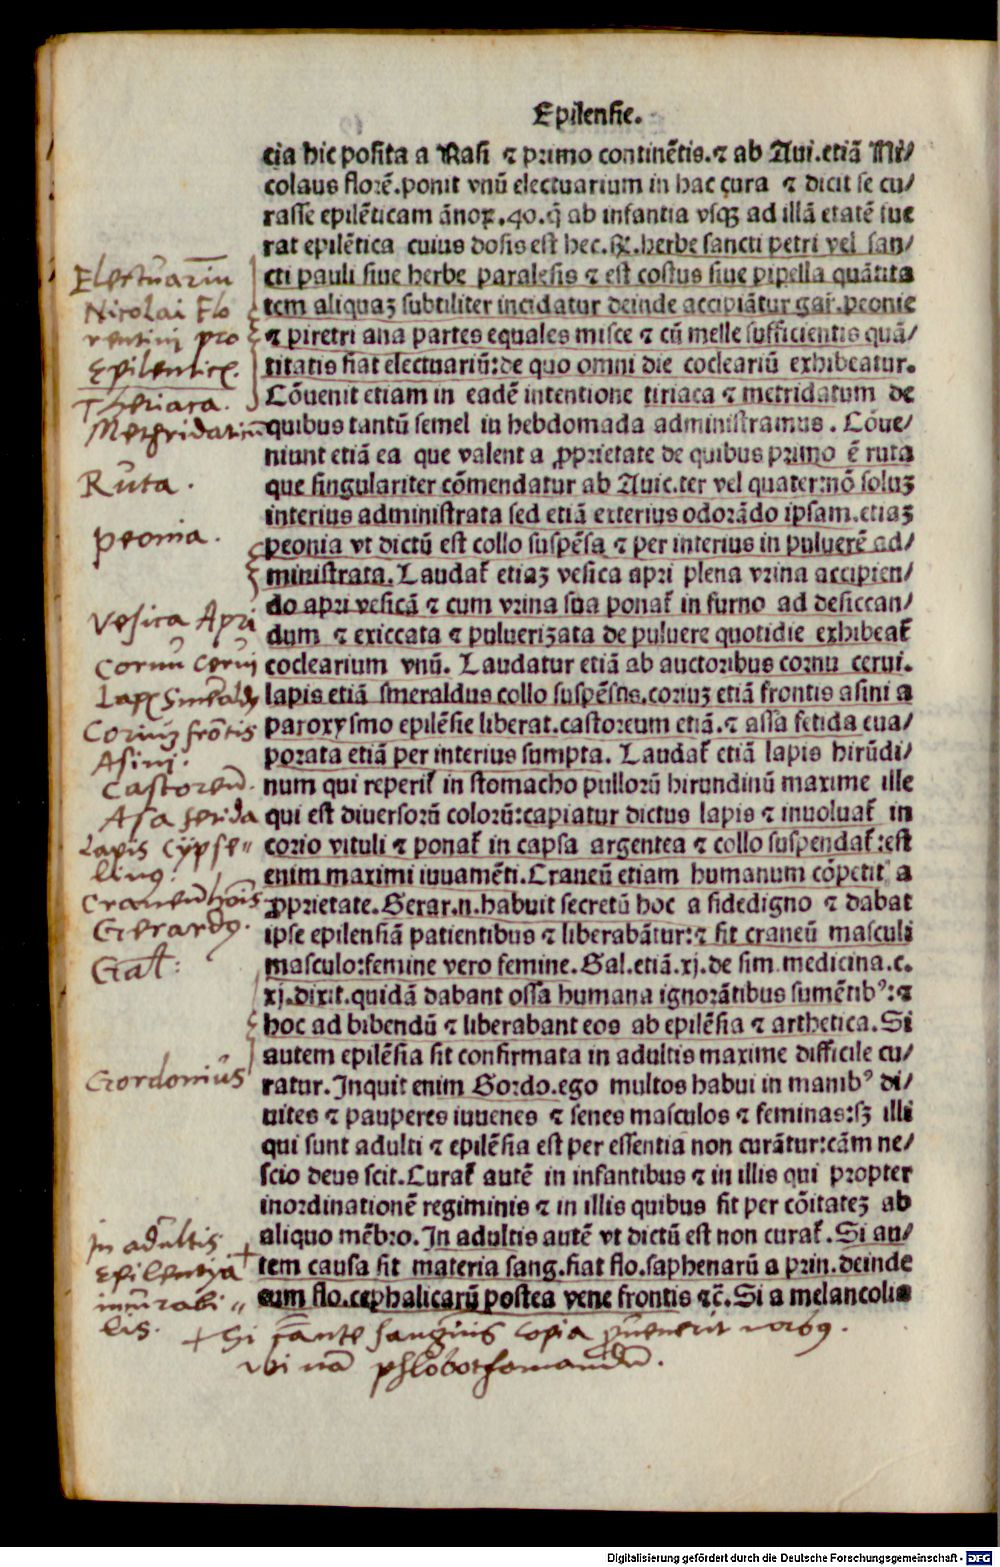 Epilensie.
cia hic posita a Rasi ⁊ primo continētis.⁊ ab Aui.etiā Ni/
colaus florē.ponit vnū electuarium in hac cura ⁊ dicit se cu/
rasse epilēticam ānoꝝ.40.q̄ ab infantia vsqꝫ ad illā etatē fue
rat epilētica cuius dosis est hec.℞.herbe sancti petri vel san/
cti pauli siue herbe paralesis ⁊ est costus siue pipella quātita
tem aliquaꝫ subtiliter incidatur deinde accipiātur gar.peonie
⁊ piretri ana partes equales misce ⁊ cū melle sufficientis quā/
titatis fiat electuariū:de quo omni die cocleariū exhibeatur.
Cōuenit etiam in eadē intentione tiriaca ⁊ metridatum de
quibus tantū semel in hebdomada administramus. Cōue/
niunt etiā ea que valent a ꝓprietate de quibus primo ē ruta
que singulariter cōmendatur ab Auic.ter vel quater:nō soluꝫ
interius administrata sed etiā exterius odorādo ipsam.etiaꝫ
peonia vt dictū est collo suspēsa ⁊ per interius in puluerē ad/
ministrata. Laudaꝉ etiaꝫ vesica apri plena vrina accipien/
do apri vesicā ⁊ cum vrina sua ponaꝉ in furno ad desiccan/
dum ⁊ exiccata ⁊ puluerizata de puluere quotidie exhibeaꝉ
coclearium vnū. Laudatur etiā ab auctoribus cornu cerui.
lapis etiā smeraldus collo suspēsus.coriuꝫ etiā frontis asini a
paroxysmo epilēsie liberat.castoreum etiā.⁊ assa fetida eua/
porata etiā per interius sumpta. Laudaꝉ etiā lapis hirūdi/
num qui reperiꝉ in stomacho pullorū hirundinū maxime ille
qui est diuersorū colorū:capiatur dictus lapis ⁊ inuoluaꝉ in
corio vituli ⁊ ponaꝉ in capsa argentea ⁊ collo suspendaꝉ:est
enim maximi iuuamēti. Craneū etiam humanum cōpetit a
ꝓprietate. Gerar.n.habuit secretū hoc a fidedigno ⁊ dabat
ipse epilensiā patientibus ⁊ liberabātur:⁊ fit craneū masculi
masculo:femine vero femine. Gal.etiā.xj.de sim.medicina.c.
xj.dixit.quidā dabant ossa humana ignorātibus sumētibꝰ:⁊
hoc ad bibendū ⁊ liberabant eos ab epilēsia ⁊ arthetica. Si
autem epilēsia sit confirmata in adultis maxime difficile cu/
ratur. Inquit enim Gordo.ego multos habui in manibꝰ di/
uites ⁊ pauperes iuuenes ⁊ senes masculos ⁊ feminas:sꝫ illi
qui sunt adulti ⁊ epilēsia est per essentia non curātur:cām ne/
scio deus scit. Curaꝉ autē in infantibus ⁊ in illis qui propter
inordinationē regiminis ⁊ in illis quibus fit per cōitateꝫ ab
aliquo mēbro. In adultis autē vt dictū est non curaꝉ. Si au/
tem causa sit materia sang.fiat flo.saphenarū a prin.deinde
eum flo.cephalicarū postea vene frontis ⁊c̄. Si a melancolia
Electuariū
Nicolai Flo
rentini pro
Epilentic.
Theriaca.
Methridatiū
Ruta.
peonia.
Vesica Apri
Cornu Cerui
Lapis Smeraldꝰ
Coriuꝫ frōtis
Asini.
Castoreū.
Asa fetida
Lapis Cypse-
linꝰ.
Craneū hoīs
Gerardꝰ.
Gal:
Gordonius
In adultis
Epilentia
incurabi-
lis.
+ Si sanguis copia morbꝰ.
phlobothomandū.